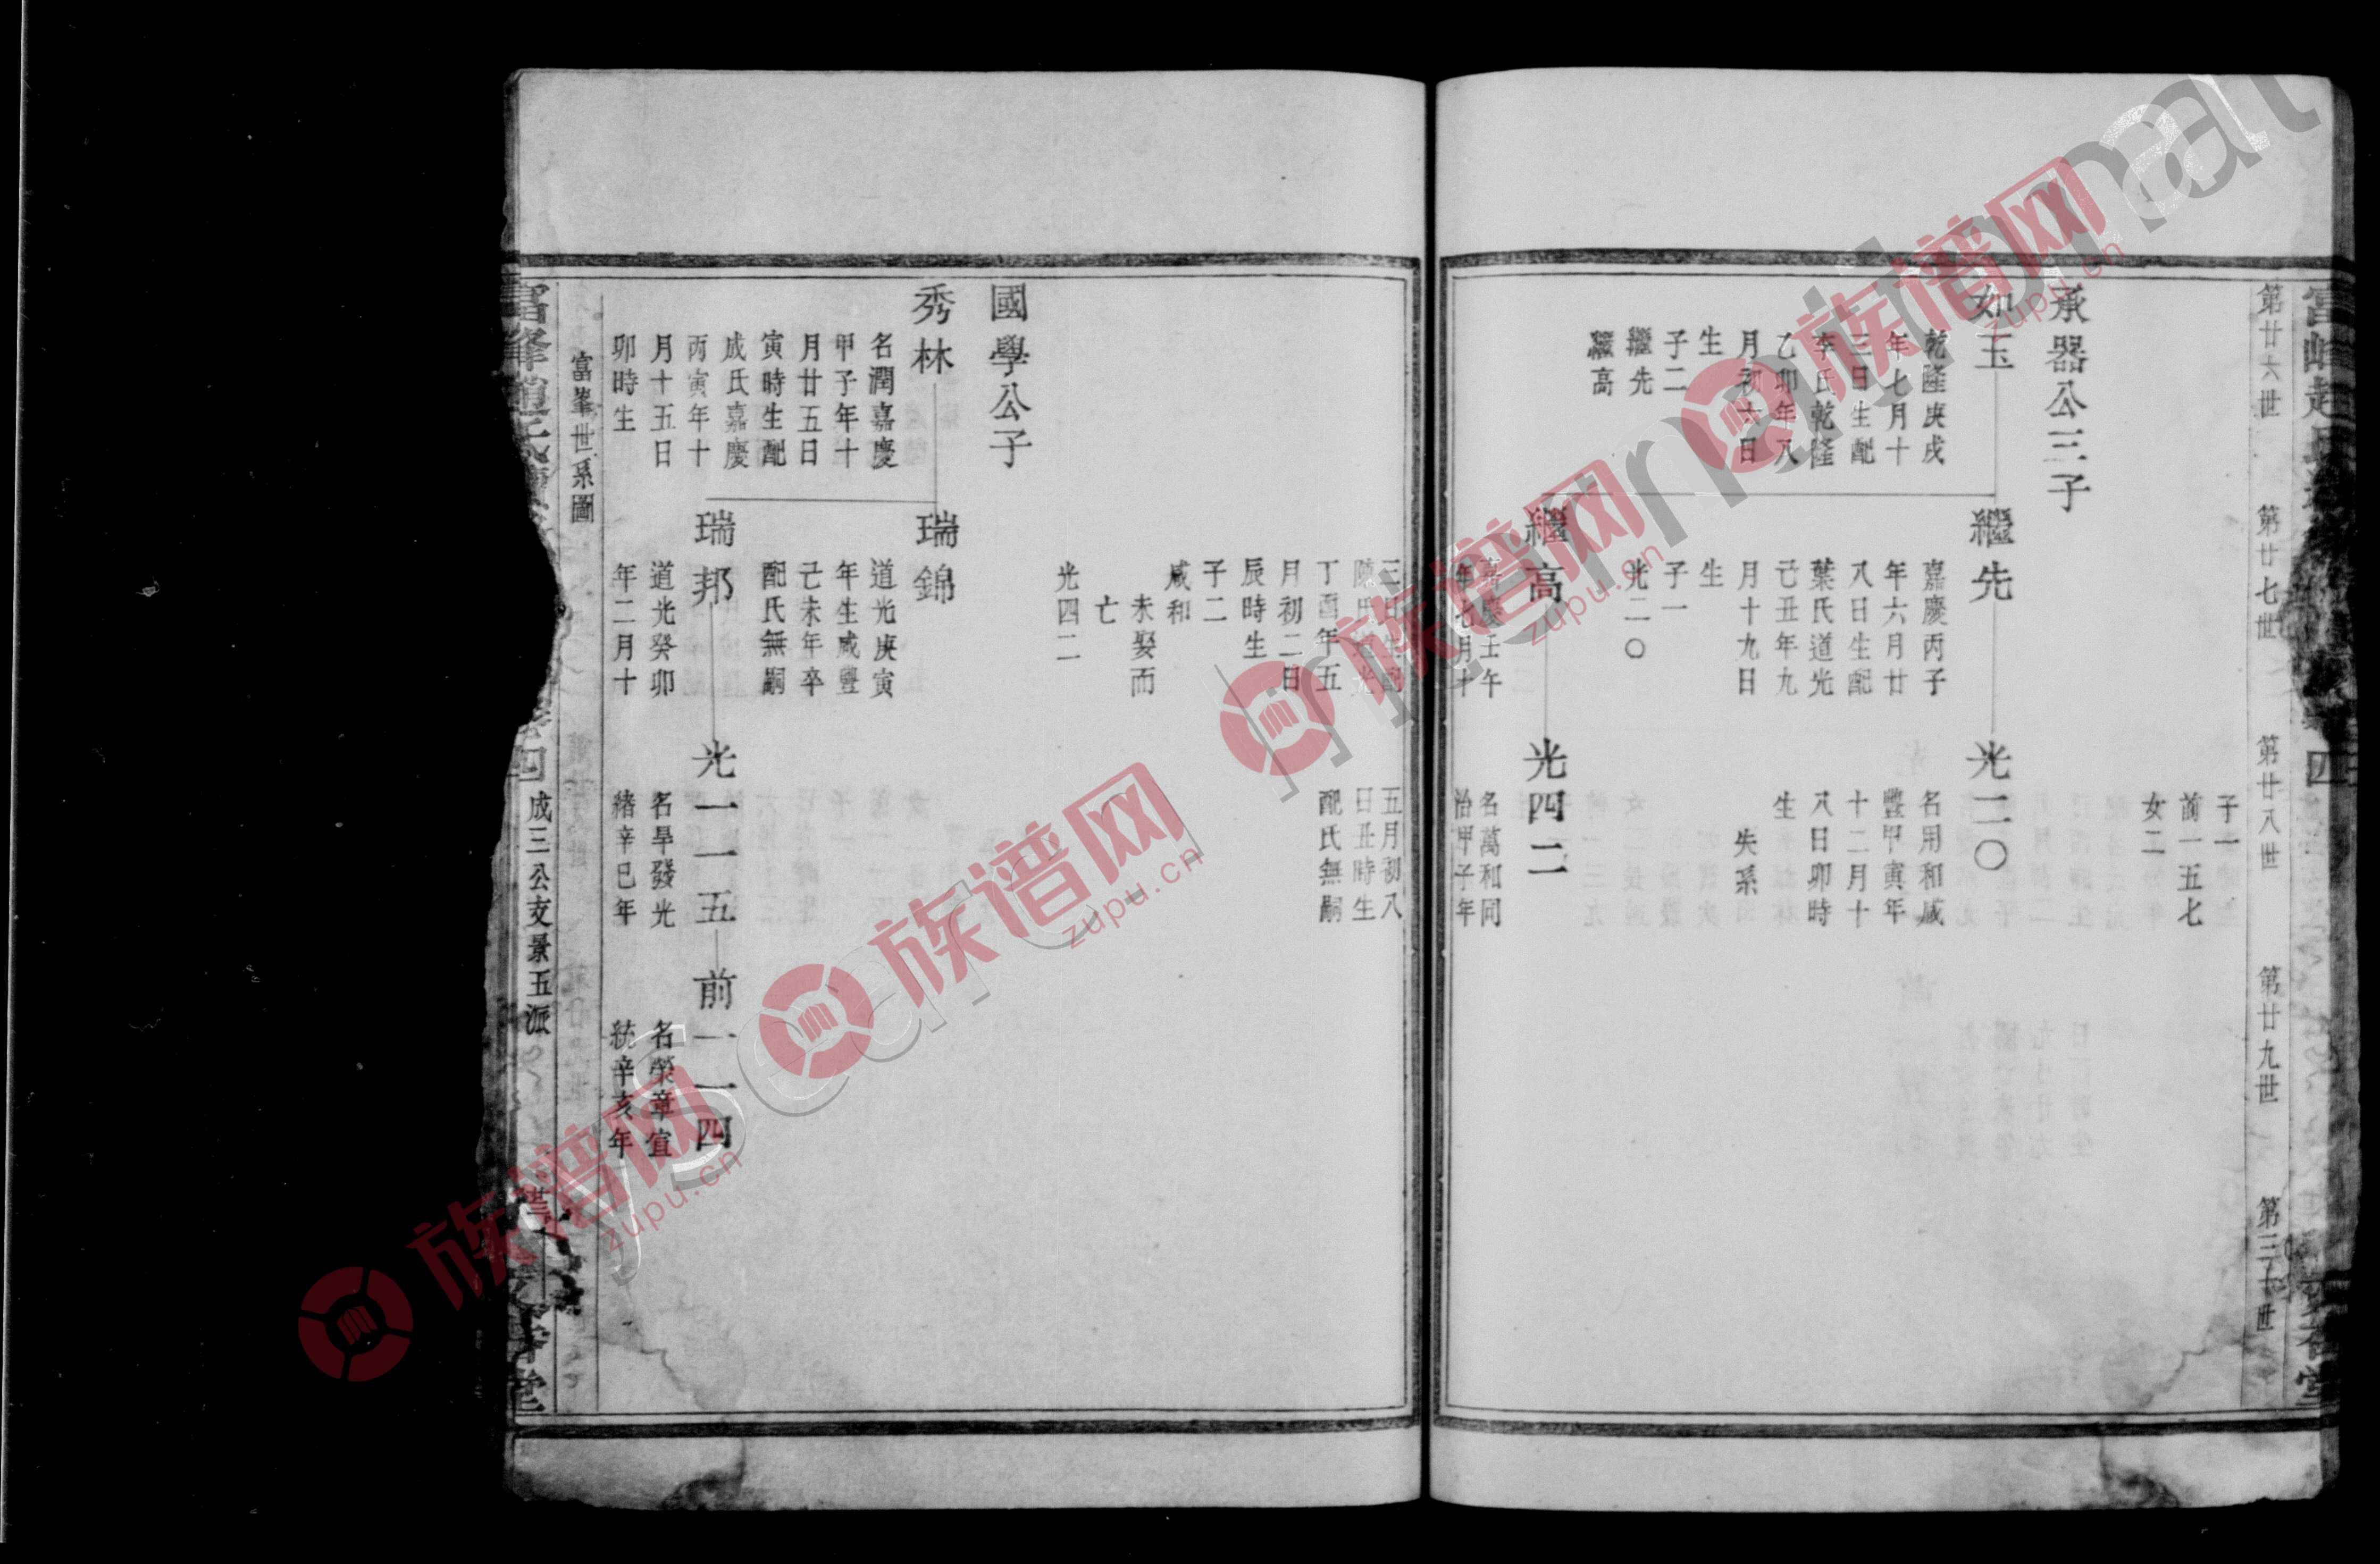 第廿六世
第廿七世
第廿八世
第廿九世
第三十世
子一
前一五七
女二
承器公三子
如玉
乾隆庚戌
年七月十
三日生配
李氏乾隆
乙卯年八
月初十日
生
子二
繼先
繼高
繼先
嘉慶丙子
年六月廿
八日生配
葉氏道光
己丑年九
月十九日
生
子一
光二〇
光二〇
名用和咸
豐甲寅年
十二月十
八日卯時
生
失系
繼高
嘉慶壬午
年七月十
三日生配
陳氏道光
丁酉年五
月初二日
辰時生
子二
咸和
未娶而
亡
光四二
光四二
名萬和同
治甲子年
五月初八
日丑時生
配氏無嗣
國學公子
秀林
名潤嘉慶
甲子年十
月廿五日
寅時生配
成氏嘉慶
丙寅年十
月十五日
卯時生
瑞錦
道光庚寅
年生咸豐
己未年卒
配氏無嗣
瑞邦
道光癸卯
年二月十
光一一五
名早發光
緒辛巳年
前一一四
名榮章宣
統辛亥年
富峯世系圖
富峰趙氏
四
成三公支景五派
堂
族谱网
zupu.cn
族谱网
zupu.cn
族谱网
zupu.cn
族谱网
zupu.cn